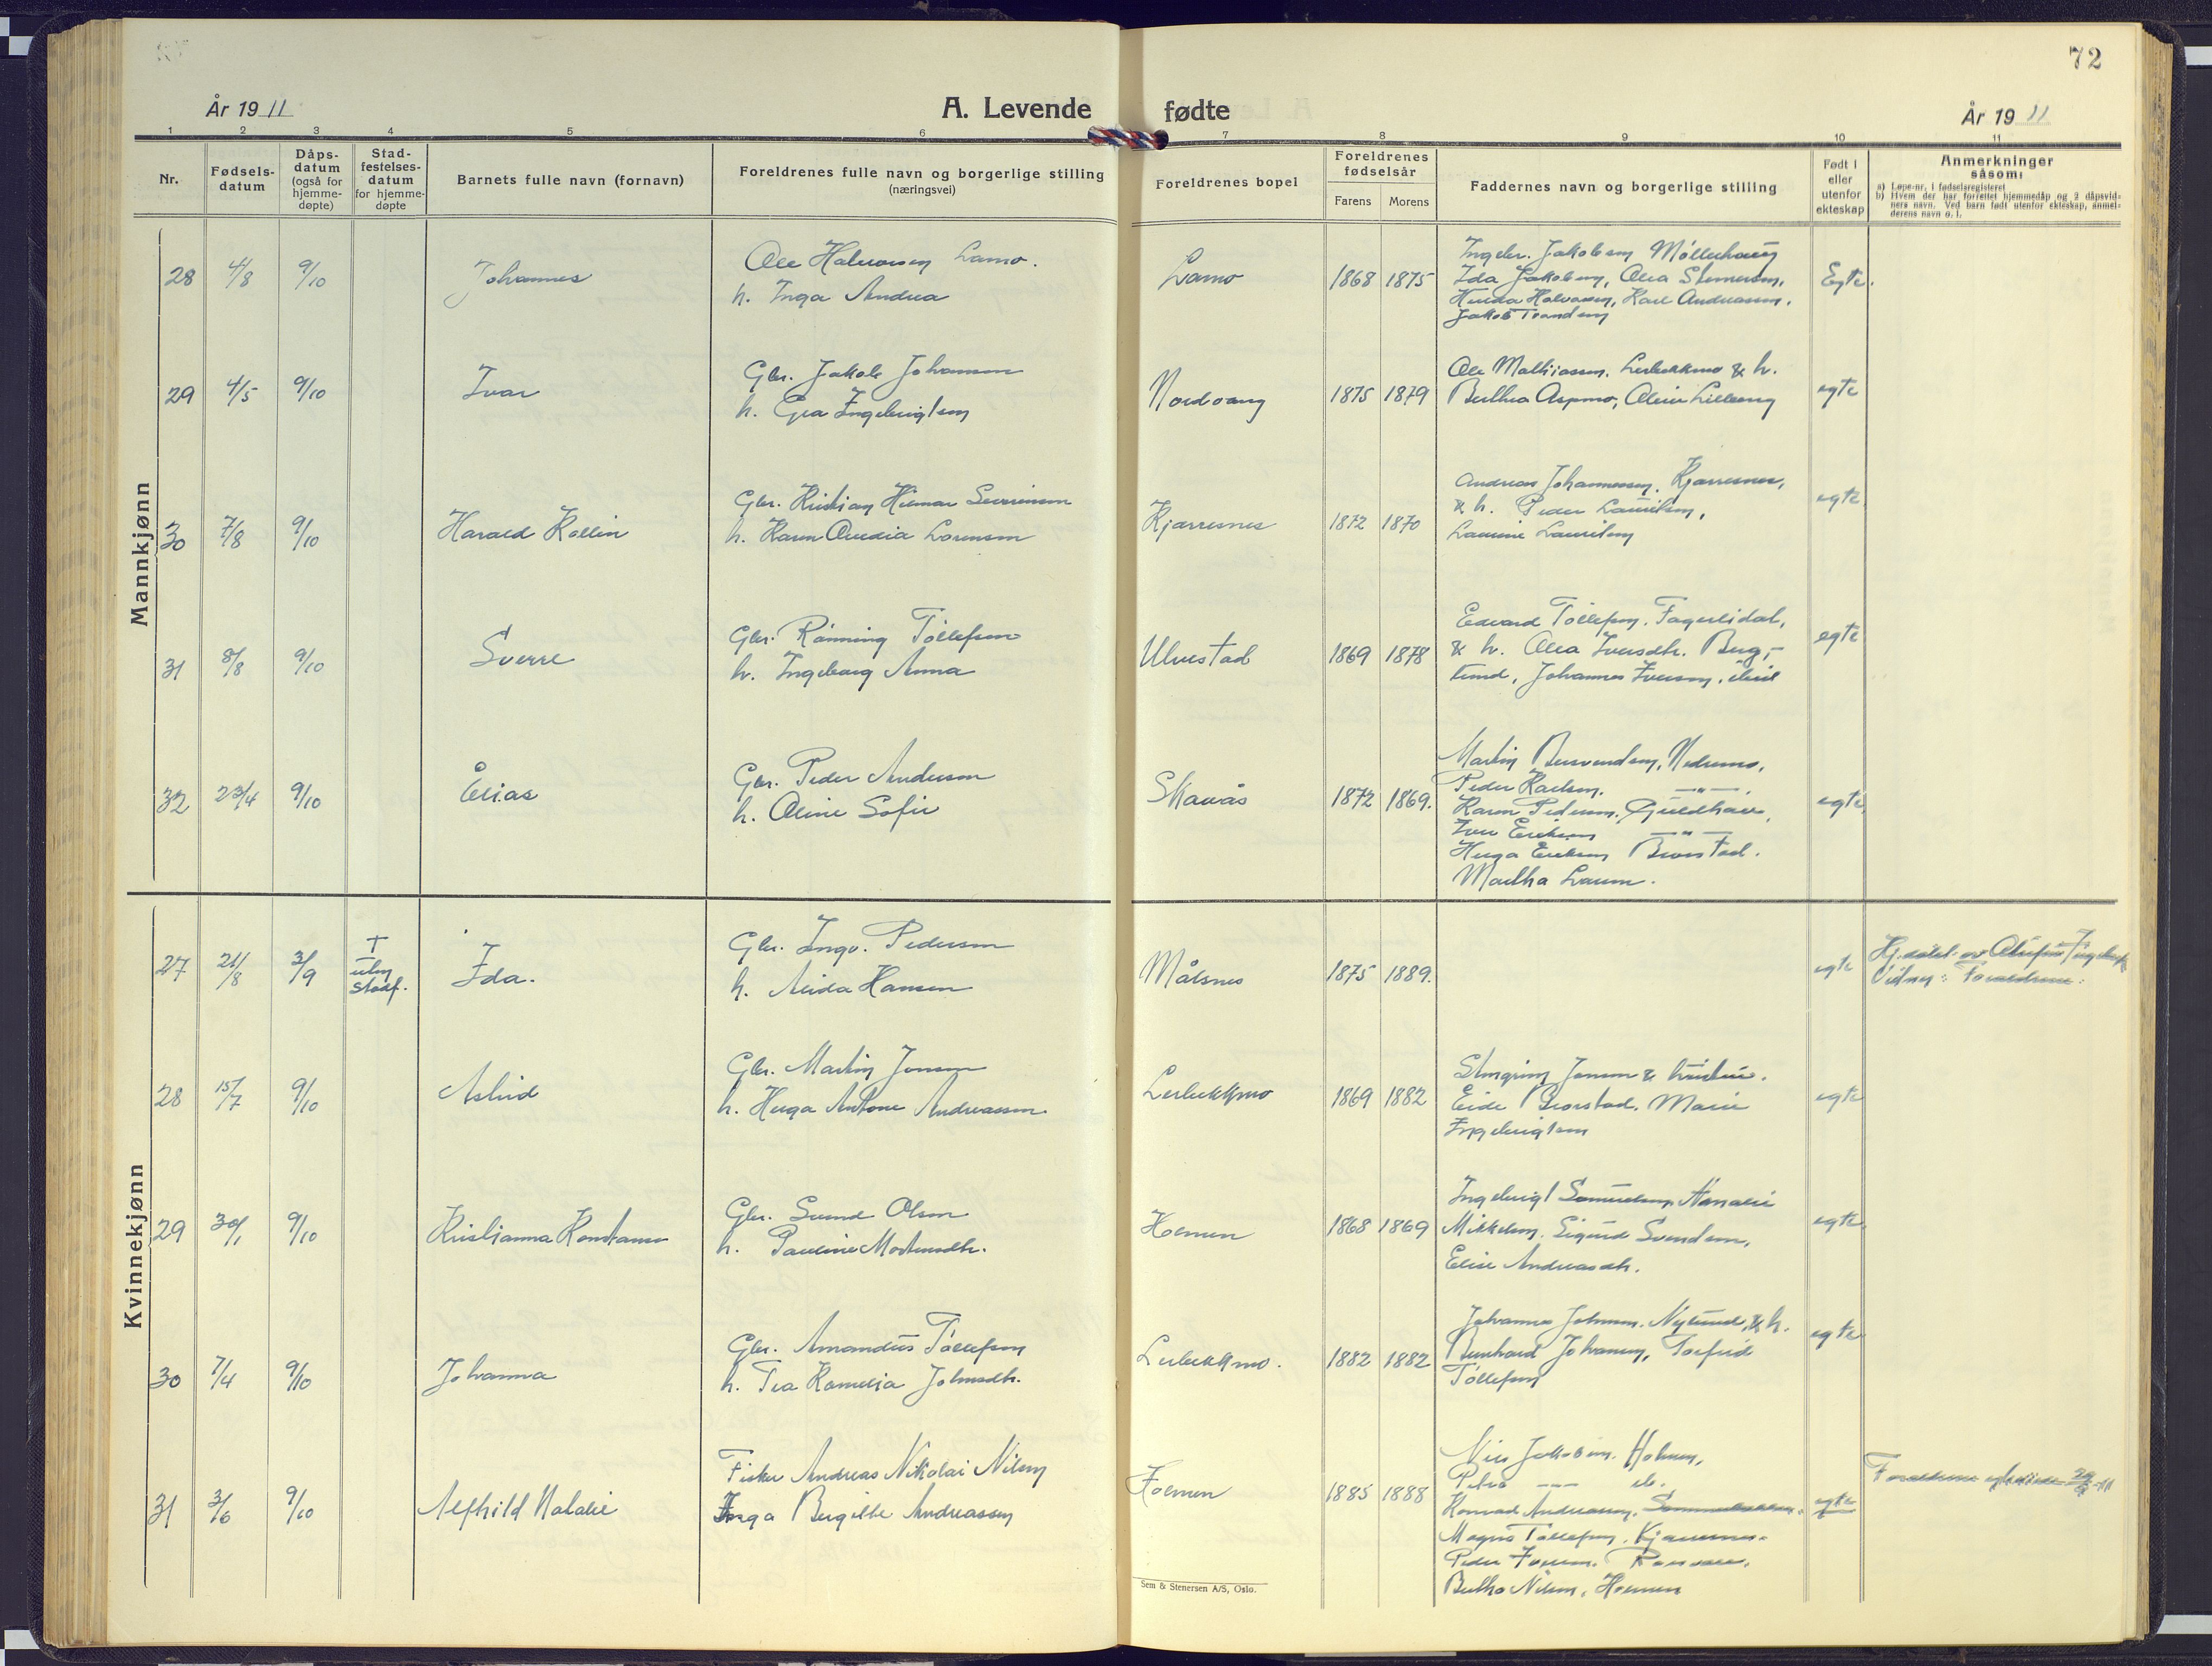 72
År 1911
A. Levende fødte
År 1911
1 2 3 4 5 6 7 8 9 10 11
Nr.
Fødsels-
datum
Dåps-
datum
(også for
hjemme-
døpte)
Stad-
festelses-
datum
for hjemme-
døpte
Barnets fulle navn (fornavn)
Foreldrenes fulle navn og borgerlige stilling
(næringsvei)
Foreldrenes bopel
Foreldrenes
fødselsår
Farens Morens
Faddernes navn og borgerlige stilling
Født i
eller
utenfor
ekteskap
Anmerkninger
såsom:
a) Løpe-nr. i fødselsregisteret
b) Hvem der har forrettet hjemmedåp og 2 dåpsvid-
ners navn. Ved barn født utenfor ekteskap, anmel-
derens navn o. l.
Mannkjønn
28 4/8 9/10 Johannes
Ole Halvorsen Lamo.
h. Inga Andrea
Lamo 1868 1875
Ingebr. Jakobsen Møllerhaug
Ida Jakobsen, Olea Steinersen,
Halvorsen, Karl Andreassen,
Jakob
Egte.
29 4/5 9/10 Ivar
Gbr. Jakob Johansen
h. Ingebrigtsen
Nordvang 1875 1879
Ole Mathiassen, Leirbekkmo & h.
Berthea Aspmo,
egte
30 7/8 9/10 Harald Kollin
Gbr. Kristian Hilmar Sevrinsen
h. Karen Lorensen
Kjærresnes 1872 1870
Andreas Johannessen, Kjærresnes,
& h. Peder Lauritsen,
Lauritsen
egte
31 8/8 9/10 Sverre
Gbr. Rønning Tollefsen
h. Ingeborg Anna
Ulvestad 1869 1878
Edvard Tollefsen, Fagerlidal,
& h. Olea Iversdtr. Berg,
Johannes Iversen,
egte
32 23/4 9/10 Elias
Gbr. Peder Andersen
h. Oline Sofie
Skavås 1872 1869.
Martin Nedremo,
Peder Karlsen. — " —
Karen Pedersen,
Iver Eriksen — " —
Eriksen
Martha Larsen.
egte
Kvinnekjønn
27 21/8 3/9
†
uten
stadf.
Ida.
Gbr. Ingv. Pedersen
h. Hansen
Målsnes 1875 1889.
egte
Vidner: Foreldrene.
28 15/7 9/10 Astrid
Gbr. Martin Jensen
h. Antone Andreassen.
Leirbekkmo 1869 1882
Jensen &
Marie
Ingebrigtsen
egte
29 30/1 9/10 Kristianna Konstanse
Gbr. Svend Olsen
h. Pauline Mortensdtr.
Holmen 1868 1869
Ingebrigt Samuelsen,
Mikkelsen, Sigurd Svendsen,
Elise Andreasdtr.
egte
30 7/4 9/10 Johanna
Gbr. Amandus Tollefsen
h. Tea Kornelia Johnsdtr.
Leirbekkmo. 1882 1882
Johannes Johnsen, Nylund, & h.
Bernhard Johansen, Torfrid
Tollefsen
egte
31 3/6 9/10 Alfhild Natalie
Fisker Andreas Nikolai Nilsen
Inga Bergitte Andreassen
Holmen 1885 1888
Nils Jakobsen, Holmen,
Petra — " —
Konrad Andreassen,
Magns Tollefsen, Kjærresnes
Peder
Bertha Nilsen, Holmen
egte
Foreldrene
Sem & Stenersen A/S, Oslo.